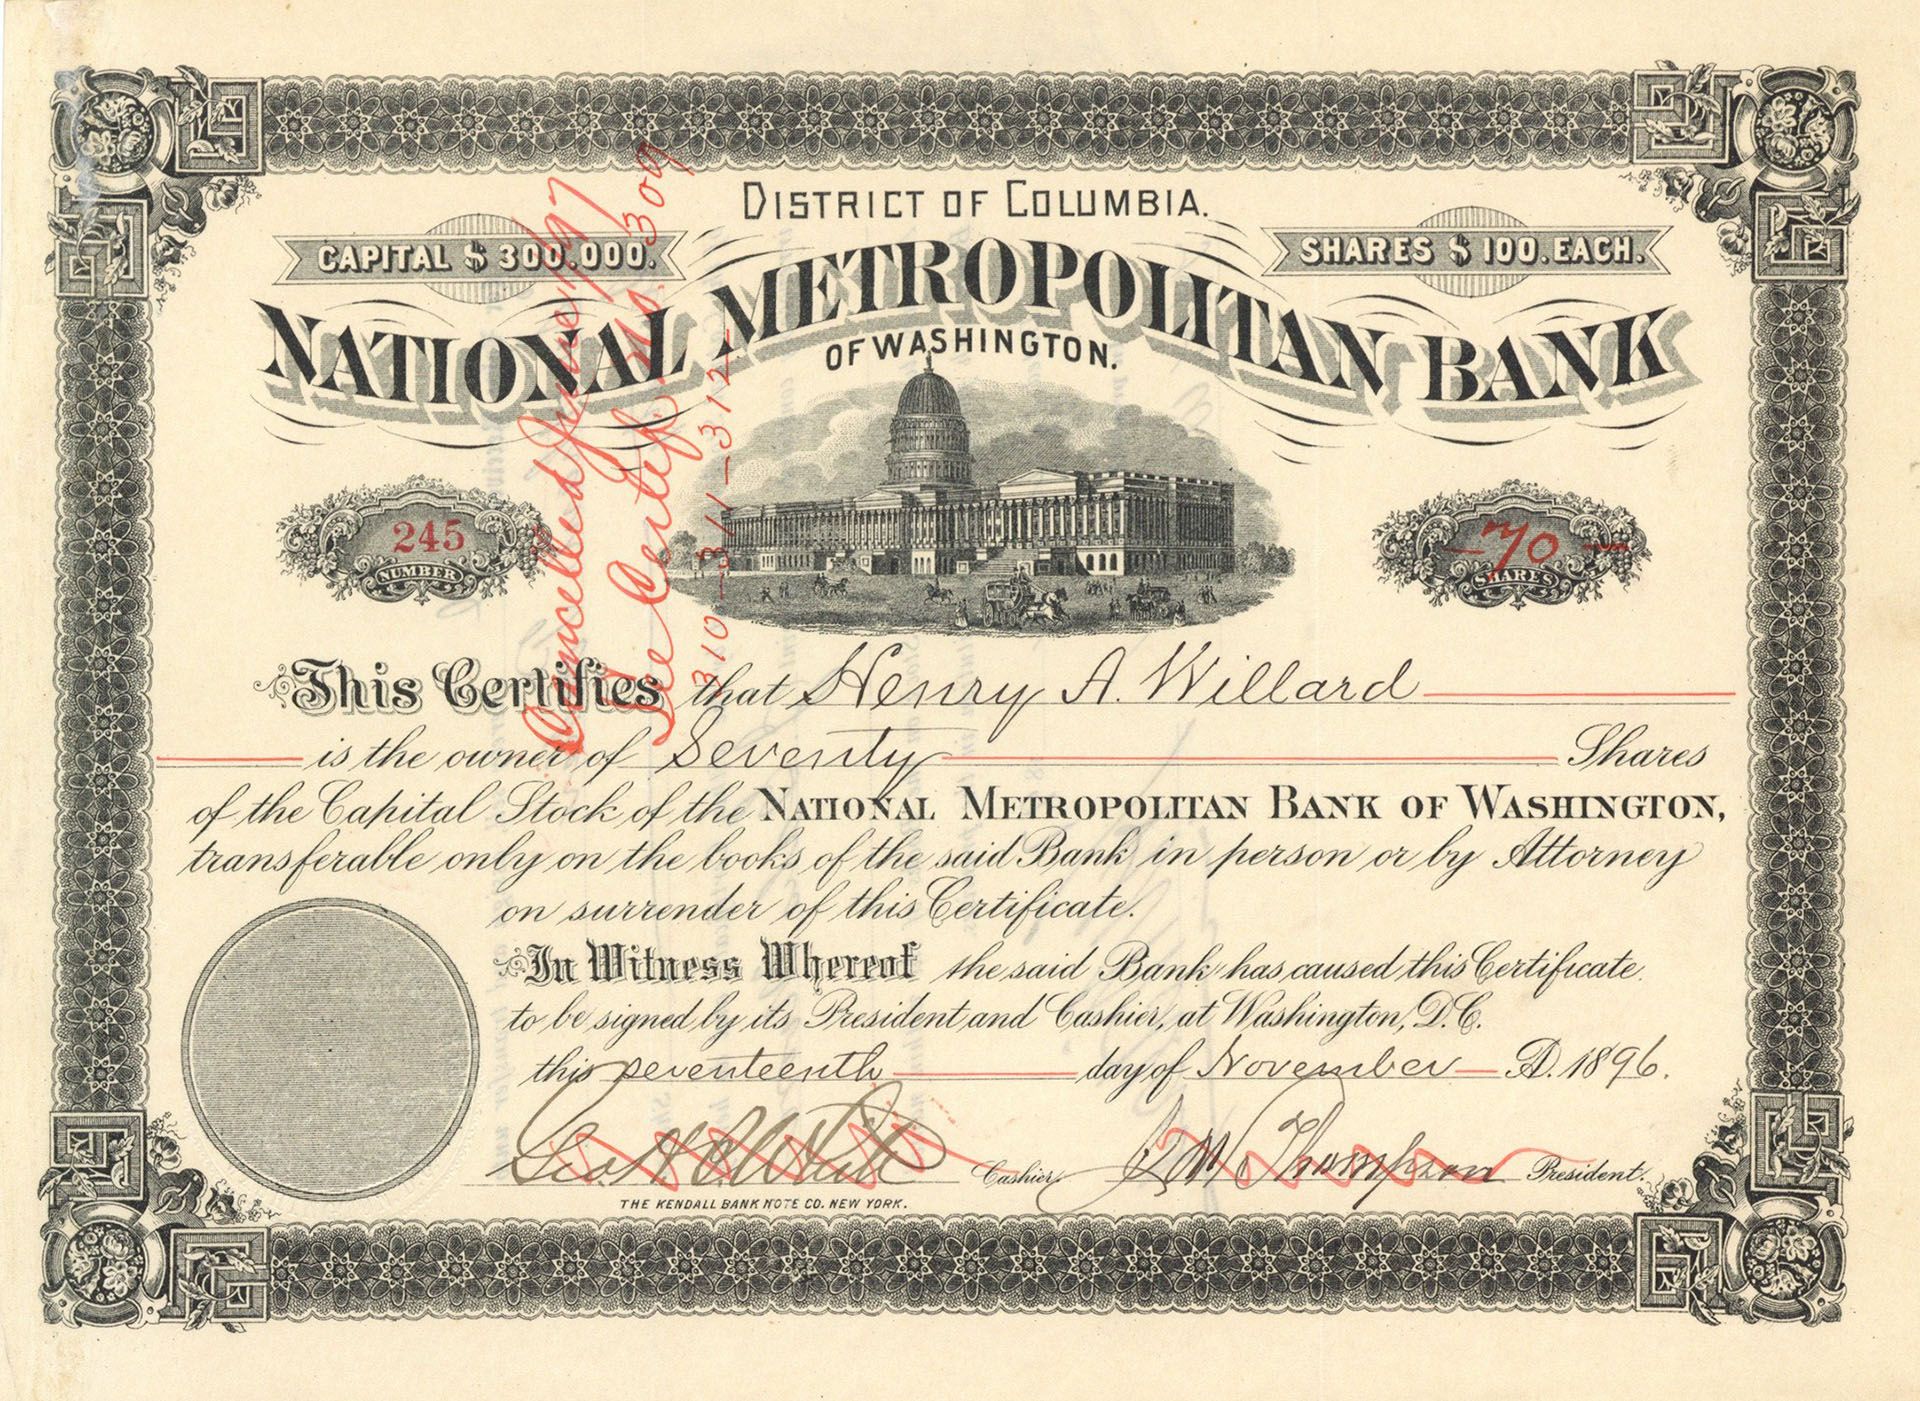 DISTRICT OF COLUMBIA.
CAPITAL $ 300.000.
SHARES $ 100. EACH.
NATIONAL METROPOLITAN BANK
OF WASHINGTON.
245
NUMBER
70
SHARES
Cancelled June /97
See Certif. Nos. 309
310-311-312-
This Certifies that Henry A. Willard
is the owner of Seventy Shares
of the Capital Stock of the NATIONAL METROPOLITAN BANK OF WASHINGTON,
transferable only on the books of the said Bank in person or by Attorney
on surrender of this Certificate.
In Witness Whereof the said Bank has caused this Certificate
to be signed by its President and Cashier, at Washington, D.C.
this seventeenth day of November A.D. 1896.
Geo. H. B. White Cashier. J. W. Thompson President.
THE KENDALL BANK NOTE CO. NEW YORK.